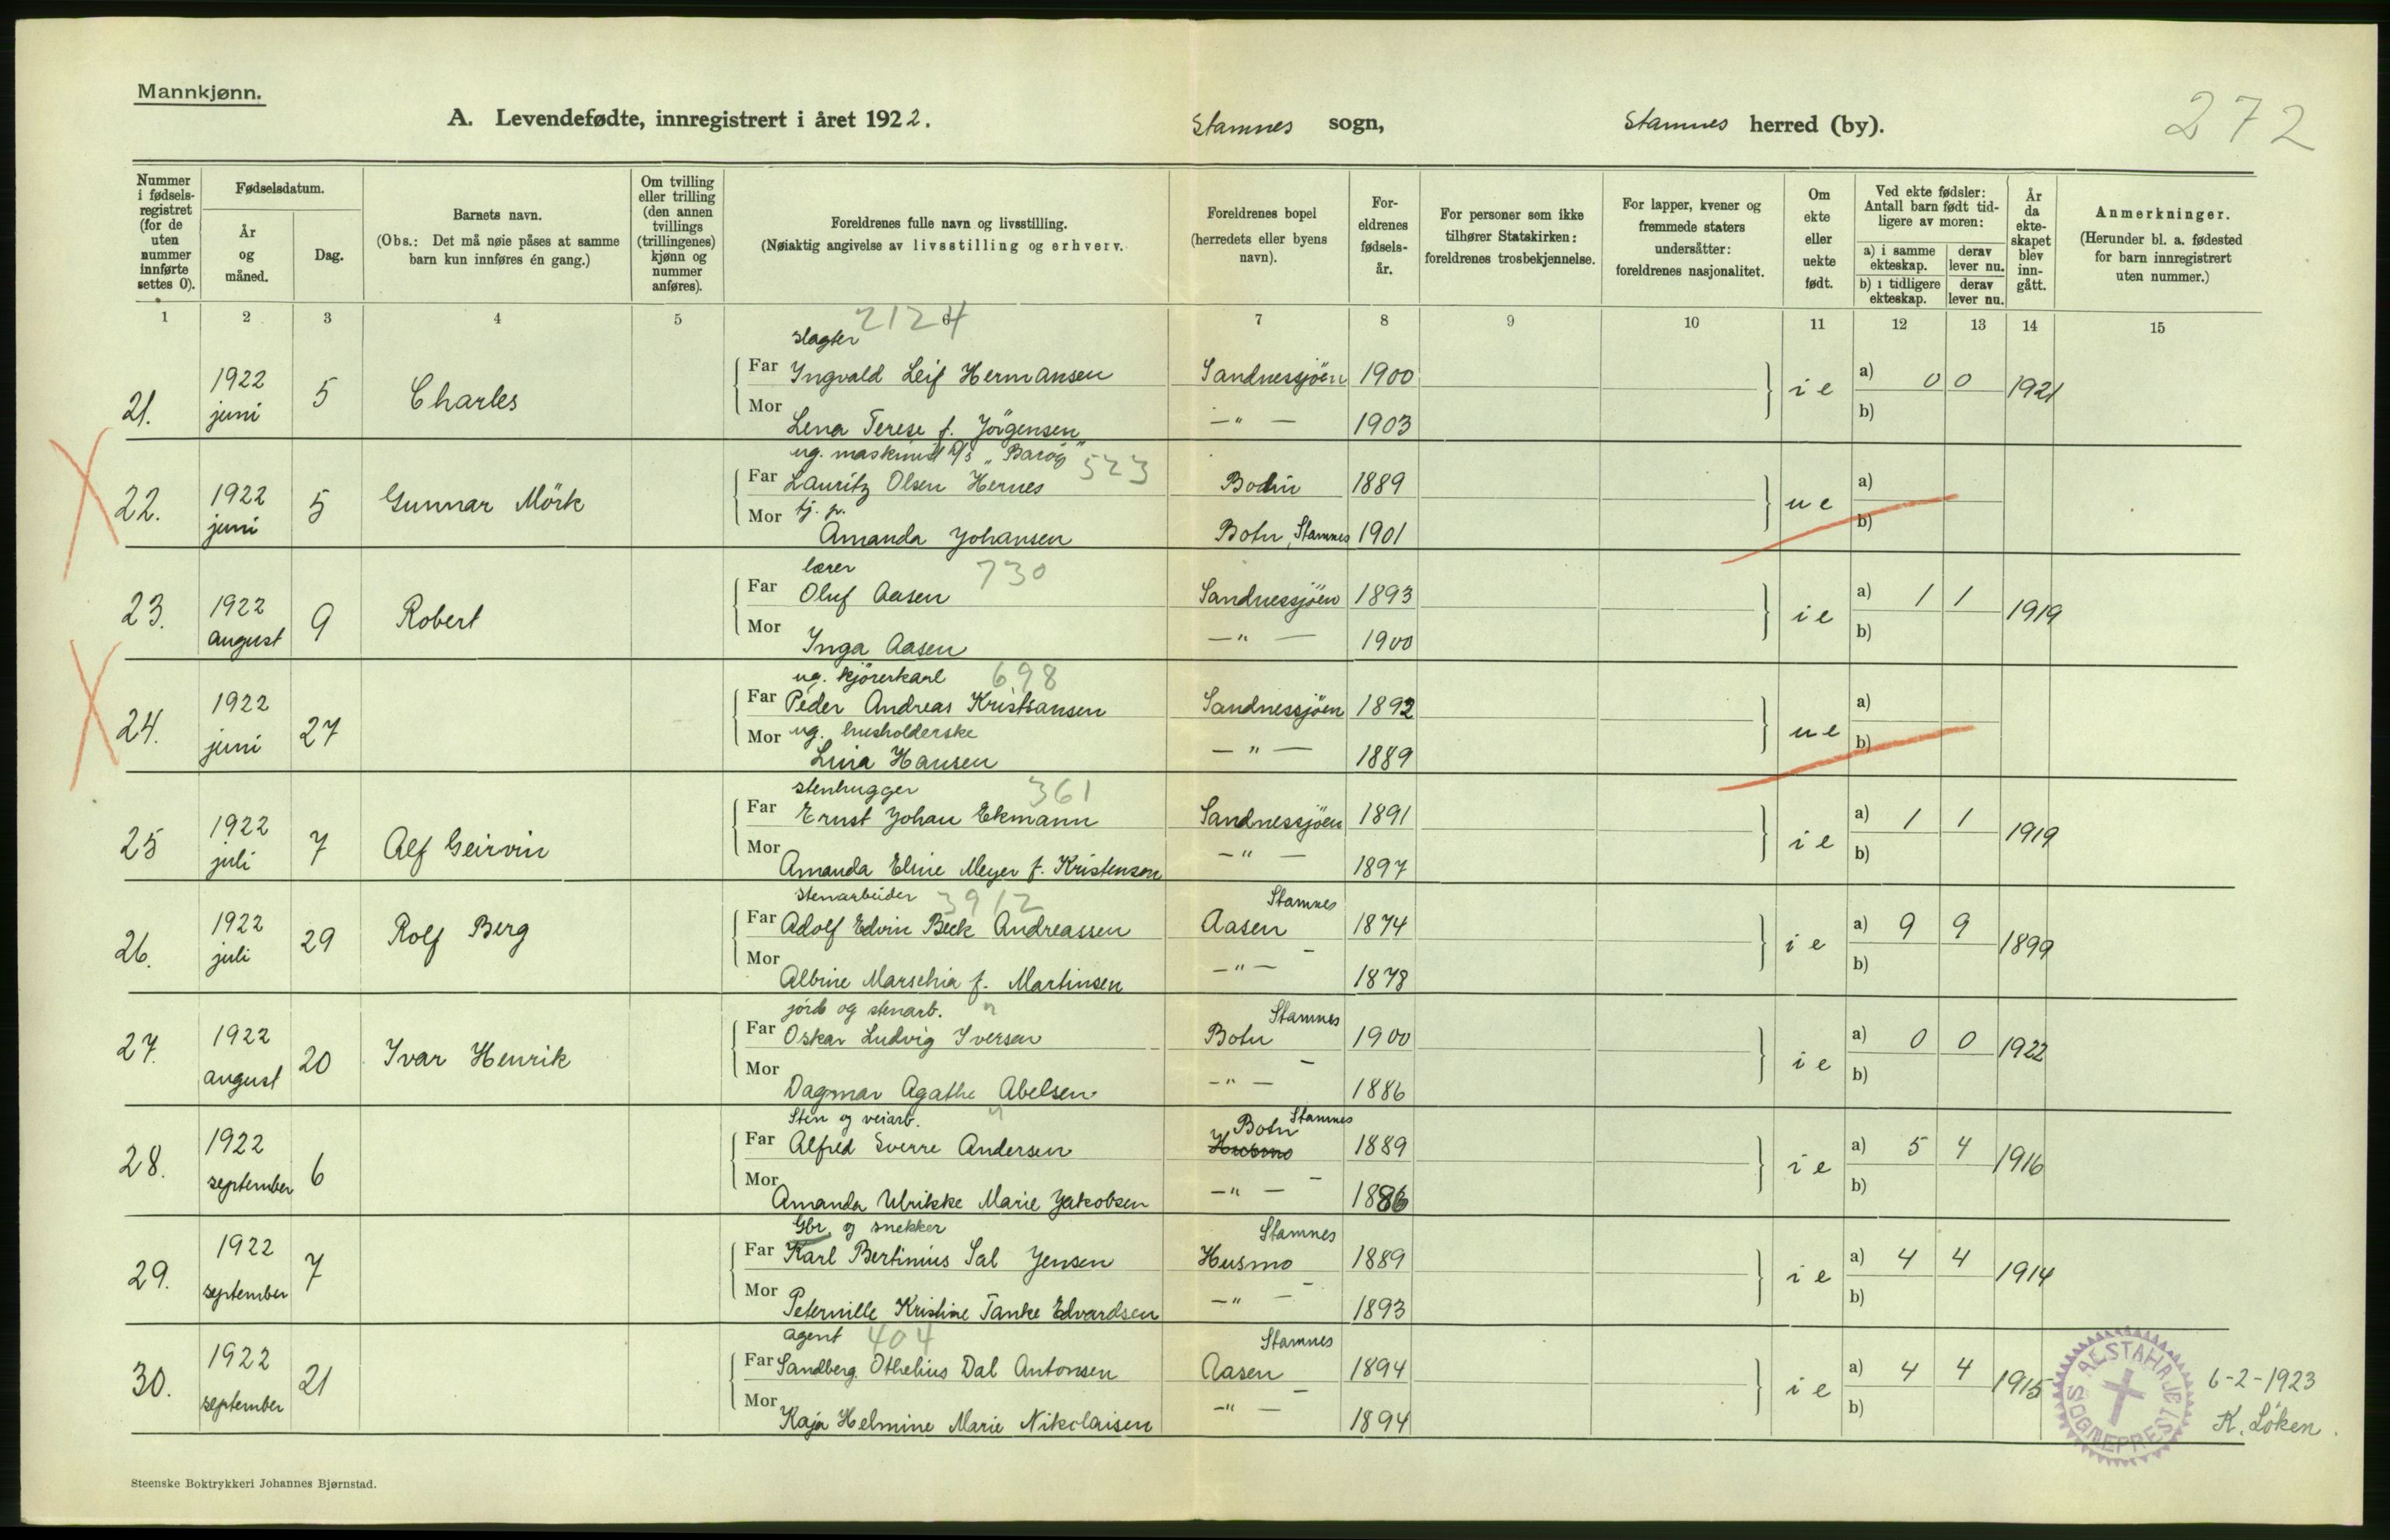 Mannkjønn.
A. Levendefødte, innregistrert i året 1922. Stamnes sogn, Stamnes herred (by).
272
Nummer i fødsels-registret (for de uten nummer innførte settes 0).
Fødselsdatum.
År og måned.
Dag.
Barnets navn.
(Obs.: Det må nøie påses at samme barn kun innføres én gang.)
Om tvilling eller trilling (den annen tvillings (trillingenes) kjønn og nummer anføres).
Foreldrenes fulle navn og livsstilling.
(Nøiaktig angivelse av livsstilling og erhverv.
Foreldrenes bopel (herredets eller byens navn).
For-eldrenes fødsels-år.
For personer som ikke tilhører Statskirken: foreldrenes trosbekjennelse.
For lapper, kvener og fremmede staters undersåtter: foreldrenes nasjonalitet.
Om ekte eller uekte født.
Ved ekte fødsler: Antall barn født tid-ligere av moren:
a) i samme ekteskap. derav lever nu.
b) i tidligere ekteskap. derav lever nu.
År da ekte-skapet blev inn-gått.
Anmerkninger.
(Herunder bl. a. fødested for barn innregistrert uten nummer.)
1 2 3 4 5 6 7 8 9 10 11 12 13 14 15
slagter 2124
21. 1922 juni 5 Charles
Far Ingvald Leif Hermansen Sandnessjöen 1900 i e a) 0 0 1921
Mor Lena Terese f. Jörgensen —"— 1903 b)
ug. maskinist "Baröy" 523
22. 1922 juni 5 Gunnar Mörk
Far Lauritz Olsen Hernes Bodin 1889 u e a)
Mor tj. p. Amanda Johansen Botn, Stamnes 1901 b)
lærer 730
23. 1922 august 9 Robert
Far Oluf Aasen Sandnessjöen 1893 i e a) 1 1 1919
Mor Inga Aasen —"— 1900 b)
ug. kjörerkarl 698
24. 1922 juni 27
Far Peder Andreas Kristiansen Sandnessjöen 1892 u e a)
Mor ug. husholderske Lina Hansen —"— 1889 b)
stenhugger 361
25 1922 juli 7 Alf Geirvin
Far Ernst Johan Ekmann Sandnessjöen 1891 i e a) 1 1 1919
Mor Amanda Eline Meyer f. Kristensen —"— 1897 b)
stenarbeider 3912
26. 1922 juli 29 Rolf Berg
Far Adolf Edvin Beck Andreassen Aasen Stamnes 1874 i e a) 9 9 1899
Mor Albine f. Martinsen —"— — 1878 b)
jörd og stenarb.
27. 1922 august 20 Ivar Henrik
Far Oskar Ludvig Iversen Botn Stamnes 1900 i e a) 0 0 1922
Mor Dagmar Agathe Abelsen —"— — 1886 b)
Sten og veiarb.
28. 1922 september 6
Far Alfred Sverre Andersen Botn Stamnes Husmo 1889 i e a) 5 4 1916
Mor Amanda Ulrikke Marie Jakobsen —"— — 1886 b)
Gbr. og snekker
29. 1922 september 7
Far Karl Bertinius Sal Jensen Husmo Stamnes 1889 i e a) 4 4 1914
Mor Peternille Kristine Tanke Edvardsen —"— — 1893 b)
agent 404
30. 1922 september 21
Far Sandberg Othelius Dal Antonsen Aasen Stamnes 1894 i e a) 4 4 1915
Mor Kaja Helmine Marie Nikolaisen —"— — 1894 b)
6-2-1923
K. Löken.
ALSTAHAUG SOGNEPREST
Steenske Boktrykkeri Johannes Bjørnstad.